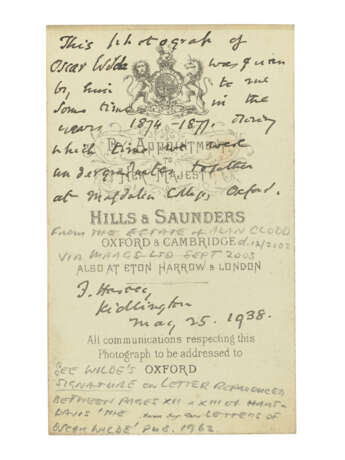 This photograph of
Oscar Wilde was given
by him to me
some time in the
years 1874-1877, during
which time we were
BY APPOINTMENT
TO
HER MAJESTY
undergraduates together
at Magdalen College, Oxford.
HILLS & SAUNDERS
FROM THE ESTATE OF ALAN CLODD
OXFORD & CAMBRIDGE d. 12/2002
VIA MAGGS LTD SEPT 2003
ALSO AT ETON HARROW & LONDON
Kidlington
May 25. 1938.
All communications respecting this
Photograph to be addressed to
SEE WILDE'S OXFORD
SIGNATURE ON LETTER REPRODUCED
BETWEEN PAGES XII & XIII OF HART-
DAVIS' THE LETTERS OF
OSCAR WILDE' PUB. 1962